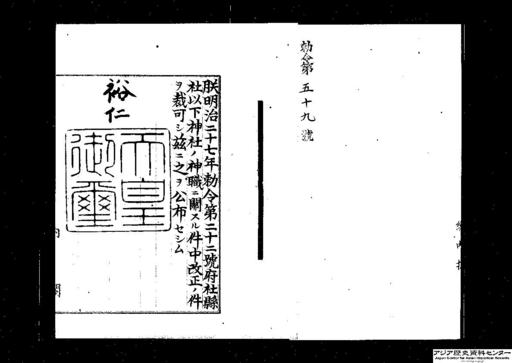 勅令第五十九號
朕明治二十七年勅令第二十二號府社縣
社以下神社ノ神職ニ關スル件中改正ノ件
ヲ裁可シ茲ニ之ヲ公布セシム
裕仁
天皇
御璽
内閣
アジア歴史資料センター
Japan Center for Asian Historical Records